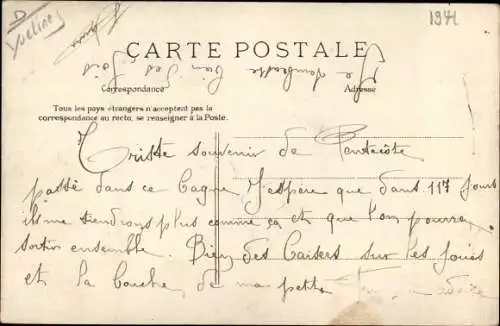 D
Yveline
1941
Je t'embrasse bien des fois
CARTE POSTALE
Correspondance
Adresse
Tous les pays étrangers n'acceptent pas la
correspondance au recto, se renseigner à la Poste.
Triste souvenir de Pentecôte
passé dans ce bagne J'espère que dans 117 jours
ils me tiendrons plus comme ça et que l'on pourra
sortir ensemble. Bien des baisers sur les joues
et la bouche de ma petite